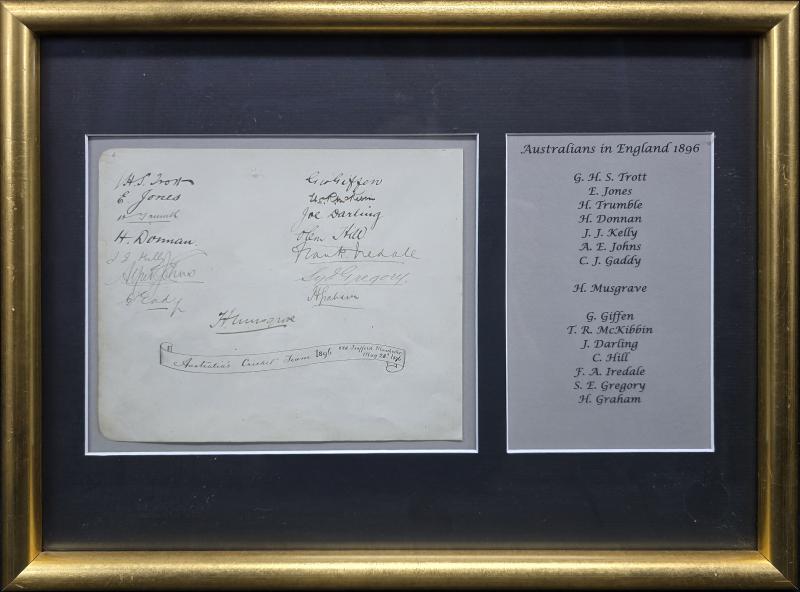 H.S. Trott
E Jones
H Trumble
H. Donnan.
J J Kelly
Alfred Johns
C Eady
Geo Giffen
McKibbin
Joe Darling
Clem Hill
Frank Iredale
Syd Gregory.
H Graham
H Musgrove
Australia's Cricket Team 1896
Old Trafford Manchester
May 28th 1896
Australians in England 1896
G. H. S. Trott
E. Jones
H. Trumble
H. Donnan
J. J. Kelly
A. E. Johns
C. J. Gaddy
H. Musgrave
G. Giffen
T. R. McKibbin
J. Darling
C. Hill
F. A. Iredale
S. E. Gregory
H. Graham